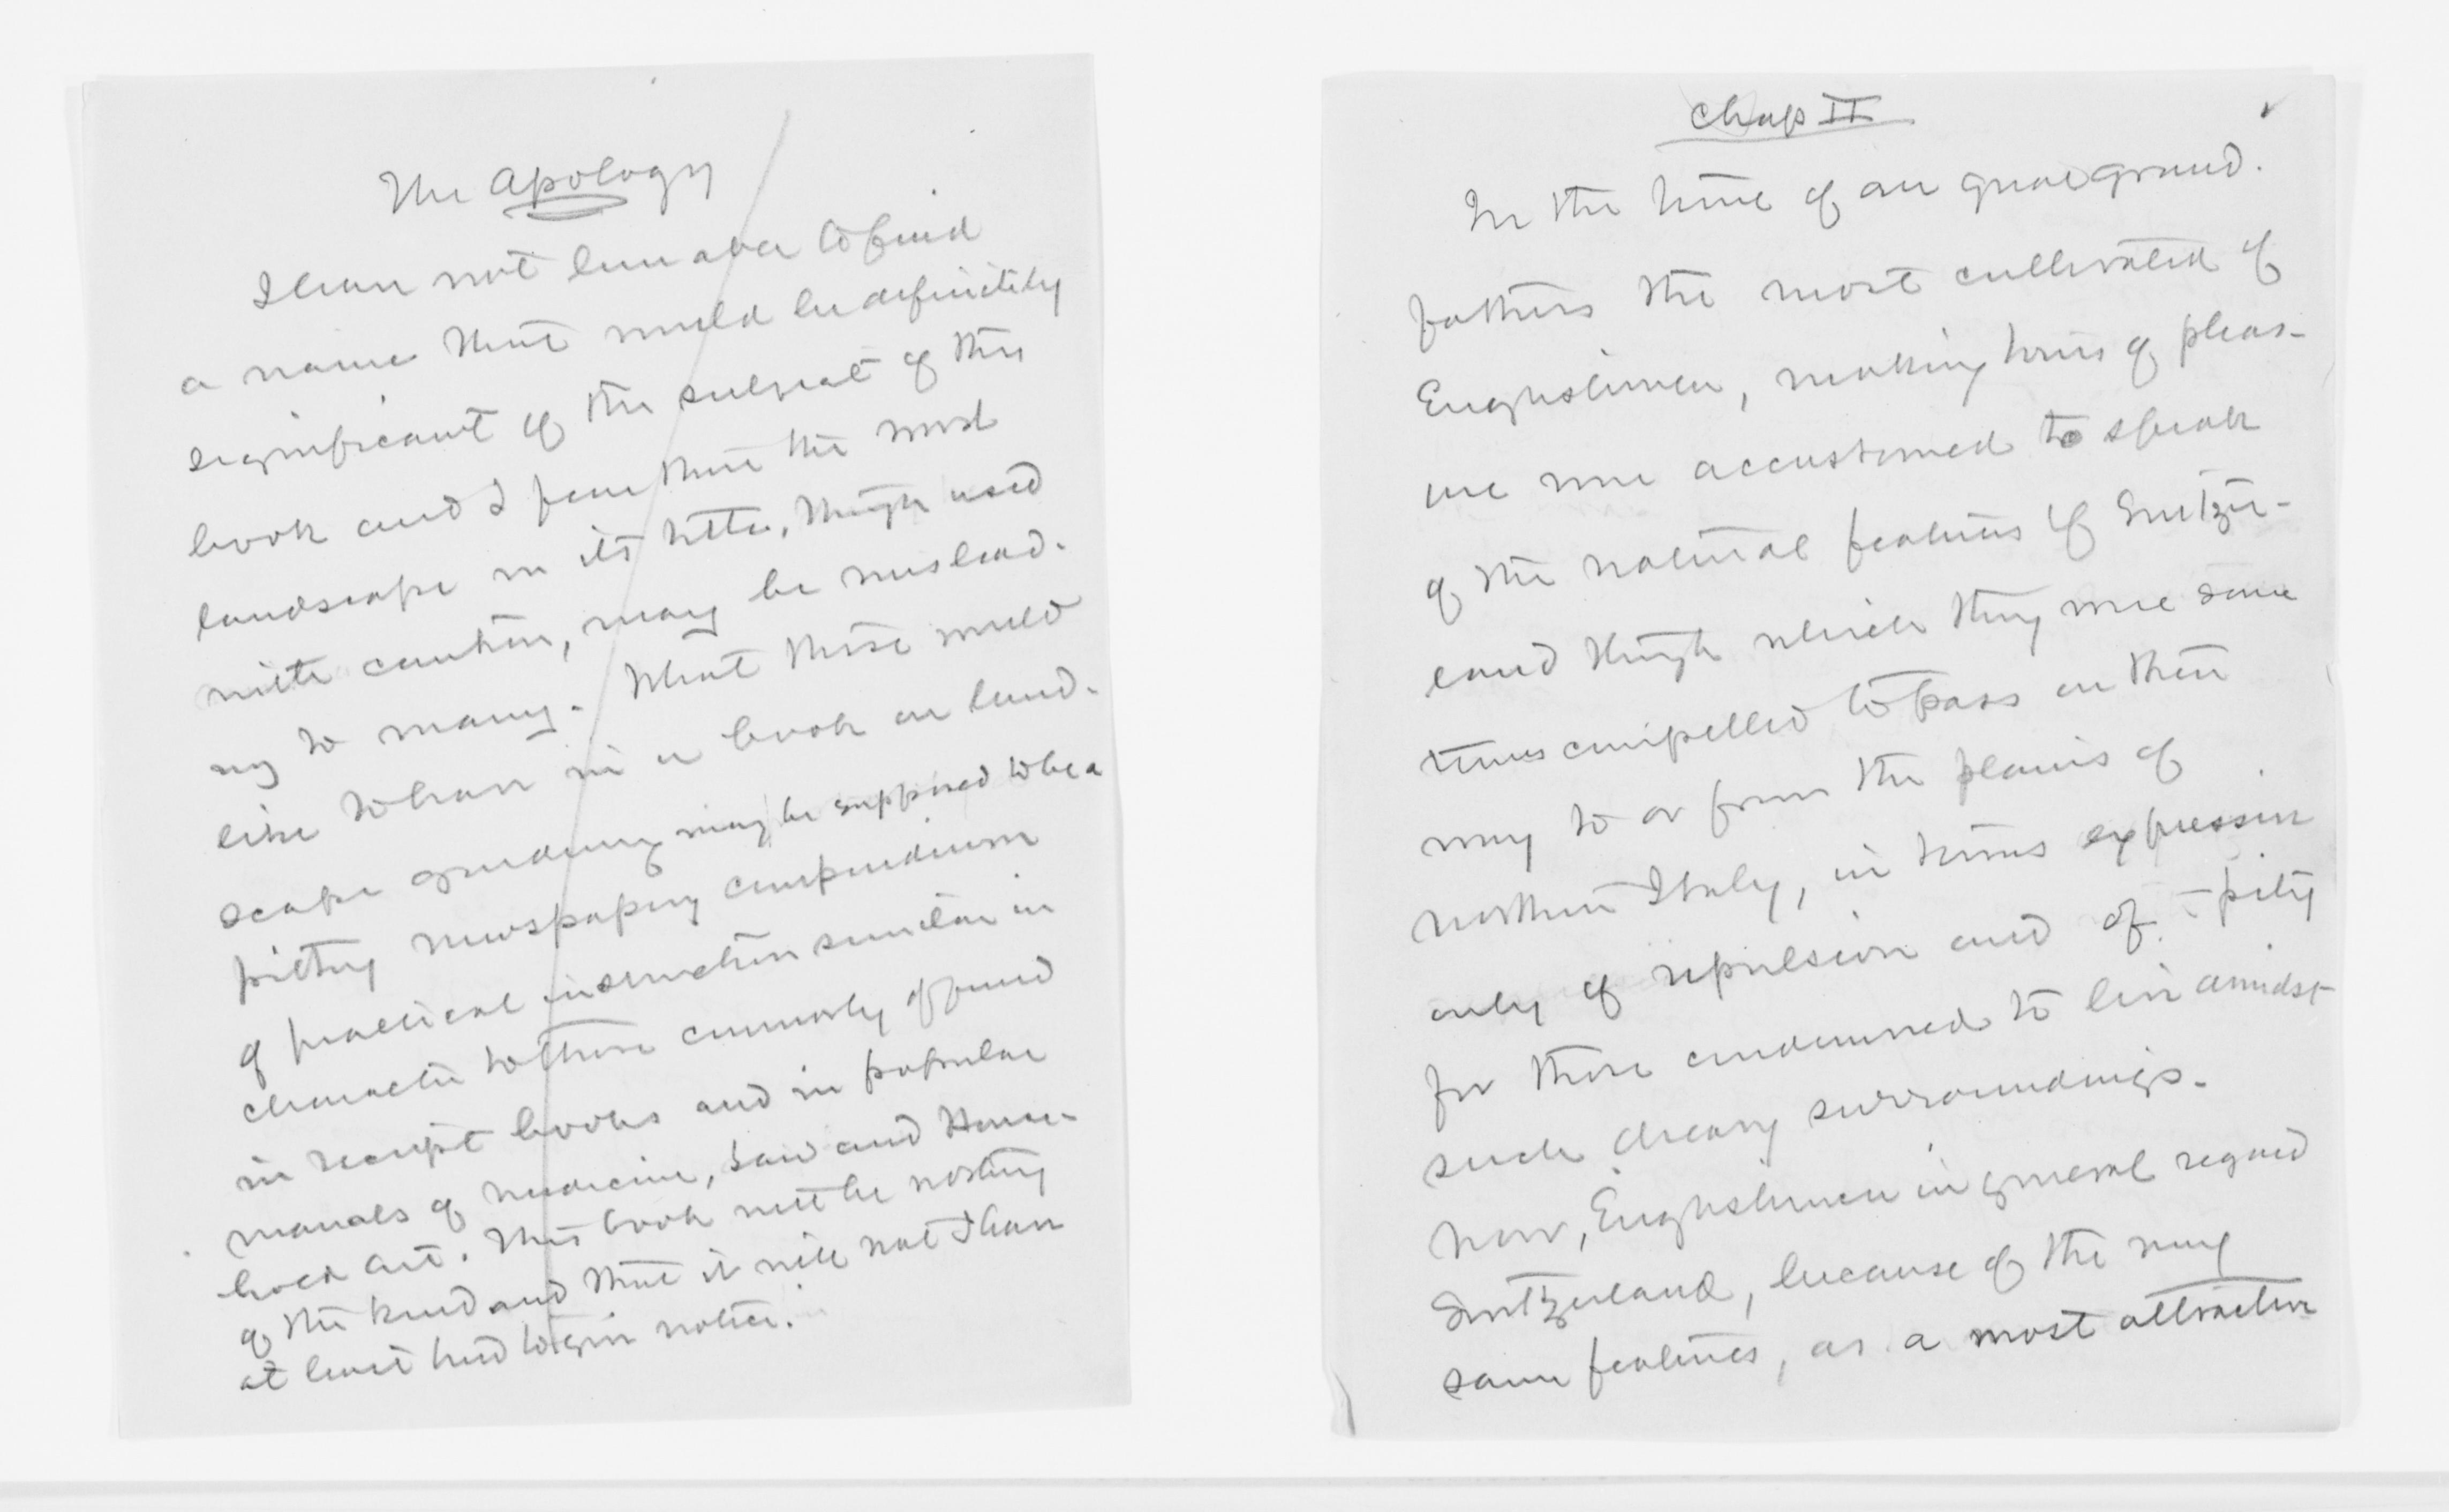 The Apology
I have not been able to find
a name that would be definitely
significant of the subject of this
book and I fear that the word
landscape in its title, though used
with caution, may be mislead-
ing to many. What those would
like to have in a book on land-
scape gardening may be supposed to be a
pithy newspapery compendium
of practical instruction similar in
character to those commonly found
in receipt books and in popular
manuals of medicine, Law and House-
hold Art. This book will be nothing
of the kind and that it will not I have
at least tried to give notice.
Chap II
In the time of our great grand-
fathers the most cultivated of
Englishmen, making tours of pleas-
ure were accustomed to speak
of the natural features of Switzer-
land though which they were some
times compelled to pass on their
way to or from the plains of
northern Italy, in terms expressive
only of repulsion and of pity
for those condemned to live amidst
such dreary surroundings.
Now, Englishmen in general regard
Switzerland, because of the very
same features, as a most attractive